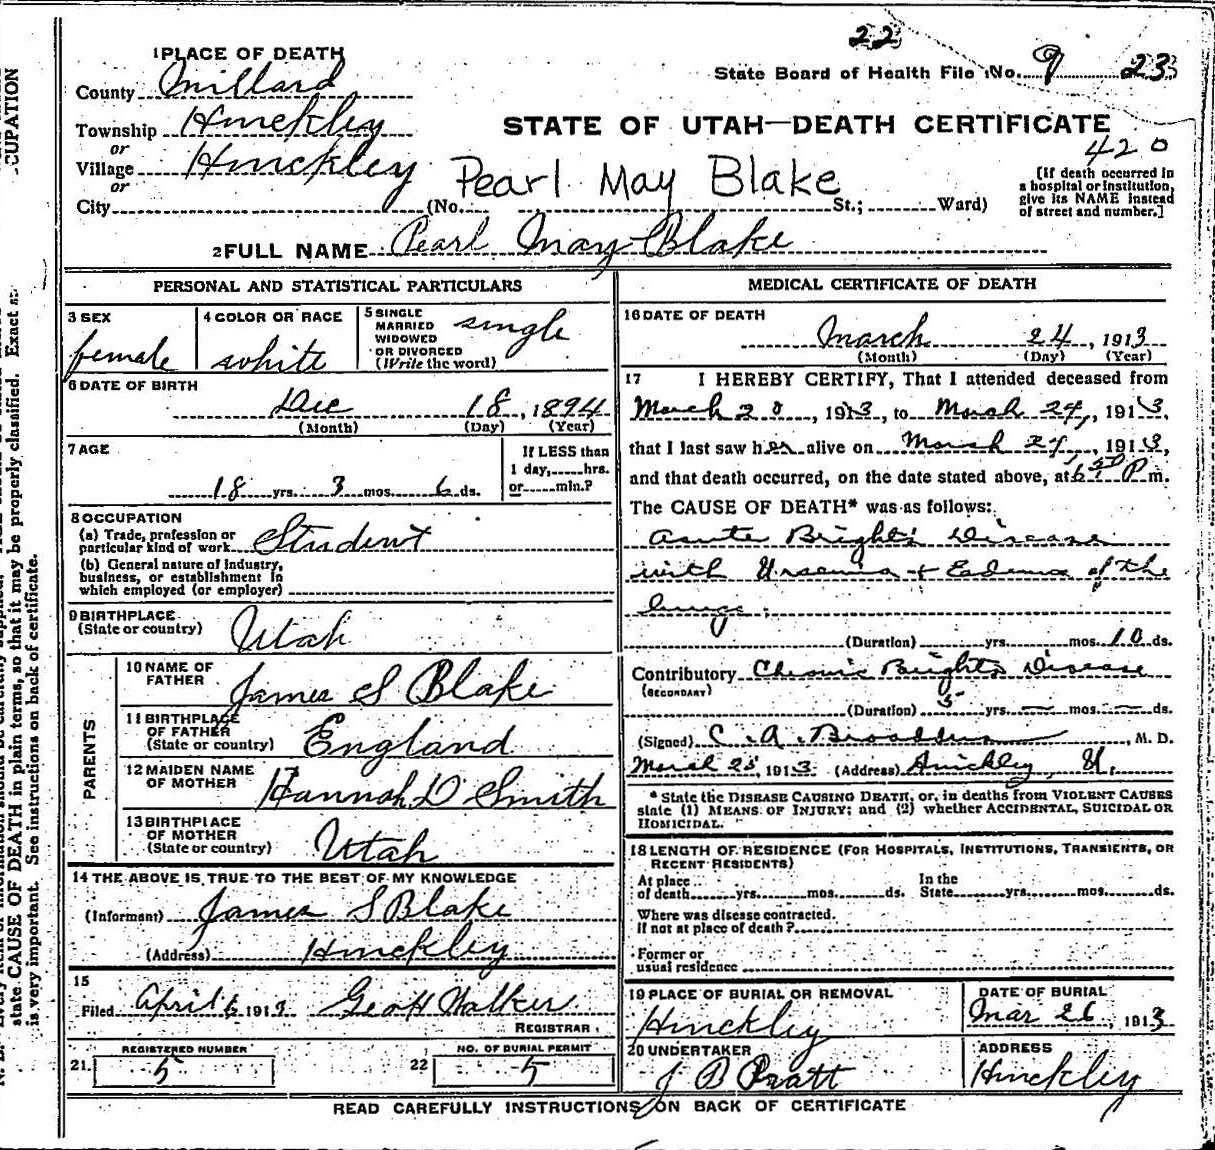 22
State Board of Health File No. 9 23
1 PLACE OF DEATH
County Millard
Township Hinckley
or
Village Hinckley
or
City (No. St.; Ward)
STATE OF UTAH—DEATH CERTIFICATE
420
[If death occurred in
a hospital or institution,
give its NAME instead
of street and number.]
Pearl May Blake
2 FULL NAME Pearl May Blake
PERSONAL AND STATISTICAL PARTICULARS
3 SEX
female
4 COLOR OR RACE
white
5 SINGLE
MARRIED
WIDOWED
OR DIVORCED
(Write the word)
single
6 DATE OF BIRTH
Dec 18, 1894
(Month) (Day) (Year)
7 AGE
18 yrs. 3 mos. 6 ds.
If LESS than
1 day, hrs.
or min.?
8 OCCUPATION
(a) Trade, profession or
particular kind of work Student
(b) General nature of industry,
business, or establishment in
which employed (or employer)
9 BIRTHPLACE
(State or country) Utah
PARENTS
10 NAME OF
FATHER James S Blake
11 BIRTHPLACE
OF FATHER
(State or country) England
12 MAIDEN NAME
OF MOTHER Hannah D Smith
13 BIRTHPLACE
OF MOTHER
(State or country) Utah
14 THE ABOVE IS TRUE TO THE BEST OF MY KNOWLEDGE
(Informant) James S Blake
(Address) Hinckley
15
Filed April 6 1913 Geo H Walker
REGISTRAR
21. REGISTERED NUMBER
5
22 NO. OF BURIAL PERMIT
5
MEDICAL CERTIFICATE OF DEATH
16 DATE OF DEATH
March 24, 1913
(Month) (Day) (Year)
17 I HEREBY CERTIFY, That I attended deceased from
March 20, 1913, to March 24, 1913,
that I last saw her alive on March 24, 1913,
and that death occurred, on the date stated above, at 6:50 P m.
The CAUSE OF DEATH* was as follows:
Acute Bright's Disease
with Uraemia + Eadema of the
lungs.
(Duration) yrs. mos. 10 ds.
Contributory Chronic Bright's Disease
(SECONDARY)
(Duration) 5 yrs. — mos. — ds.
(Signed) C. A. Broaddus, M. D.
March 25, 1913 (Address) Hinckley, U.
* State the DISEASE CAUSING DEATH, or, in deaths from VIOLENT CAUSES
state (1) MEANS OF INJURY; and (2) whether ACCIDENTAL, SUICIDAL OR
HOMICIDAL.
18 LENGTH OF RESIDENCE (FOR HOSPITALS, INSTITUTIONS, TRANSIENTS, OR
RECENT RESIDENTS)
At place
of death yrs. mos. ds.
In the
State yrs. mos. ds.
Where was disease contracted.
If not at place of death?
Former or
usual residence
19 PLACE OF BURIAL OR REMOVAL
Hinckley
DATE OF BURIAL
Mar 26, 1913
20 UNDERTAKER
J B Pratt
ADDRESS
Hinckley
READ CAREFULLY INSTRUCTIONS ON BACK OF CERTIFICATE
state CAUSE OF DEATH in plain terms, so that it may be properly classified. Exact
is very important. See instructions on back of certificate.
CUPATION